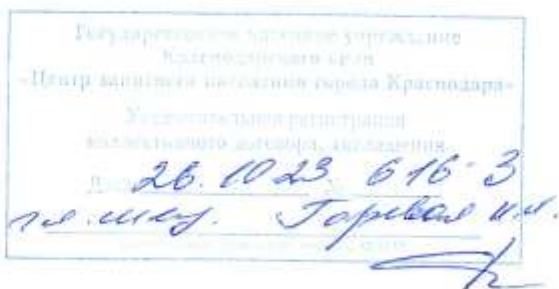 Государственное казенное учреждение
Краснодарского края
«Центр занятости населения города Краснодара»
Уведомительная регистрация
коллективного договора, соглашения
Дата 26.10.23 № 616-3
гл. инсп. И.И.